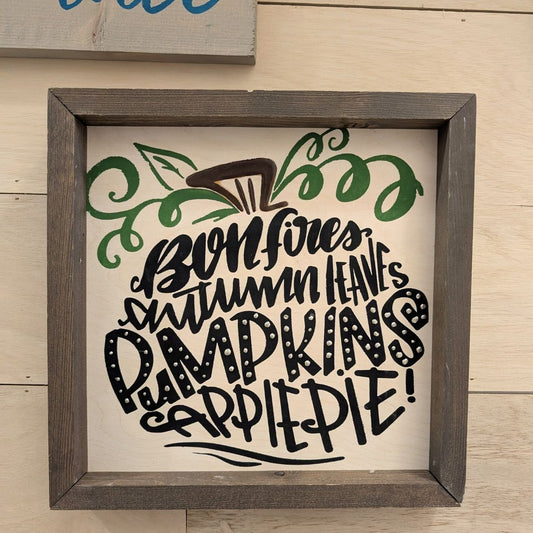 Bonfires
autumn leaves
PuMPKINS
APPlEPIE!